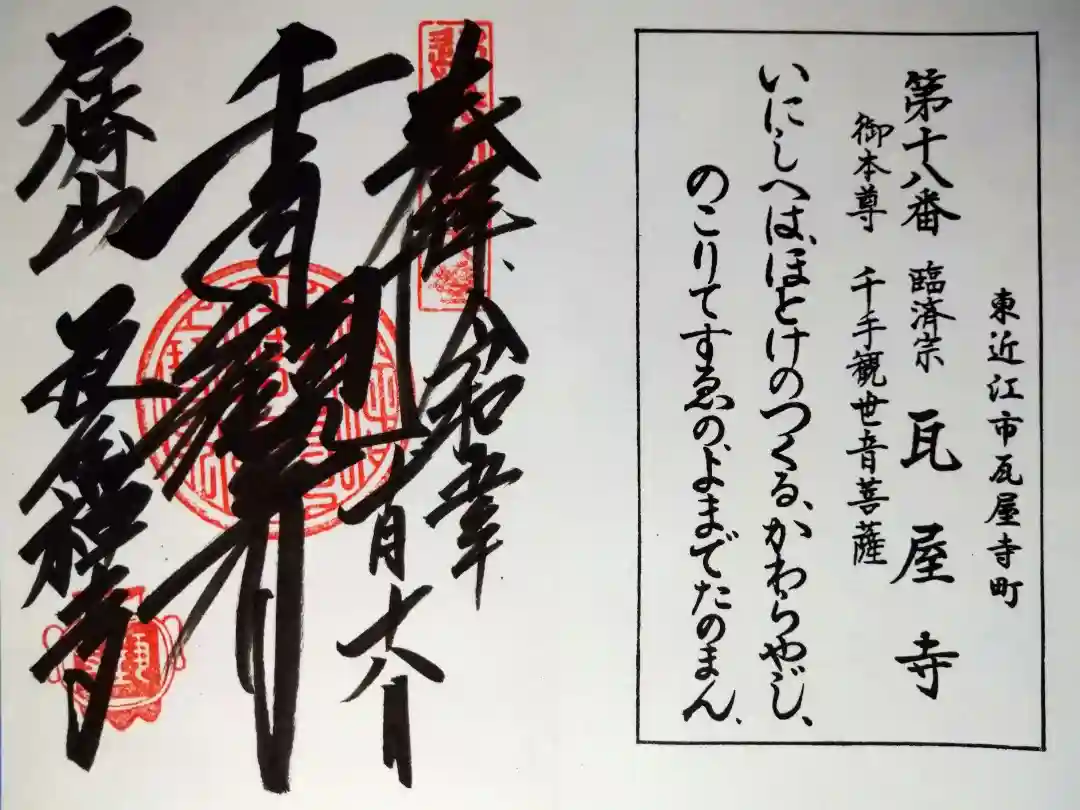 東近江市瓦屋寺町
第十八番 臨済宗 瓦屋寺
御本尊 千手観世音菩薩
いにしへは、ほとけのつくる、かわらやじ、
のこりてすゑの、よまでたのまん、
奉拝、令和五年
十一月十八日
千手観世音
石崎山 瓦屋禅寺